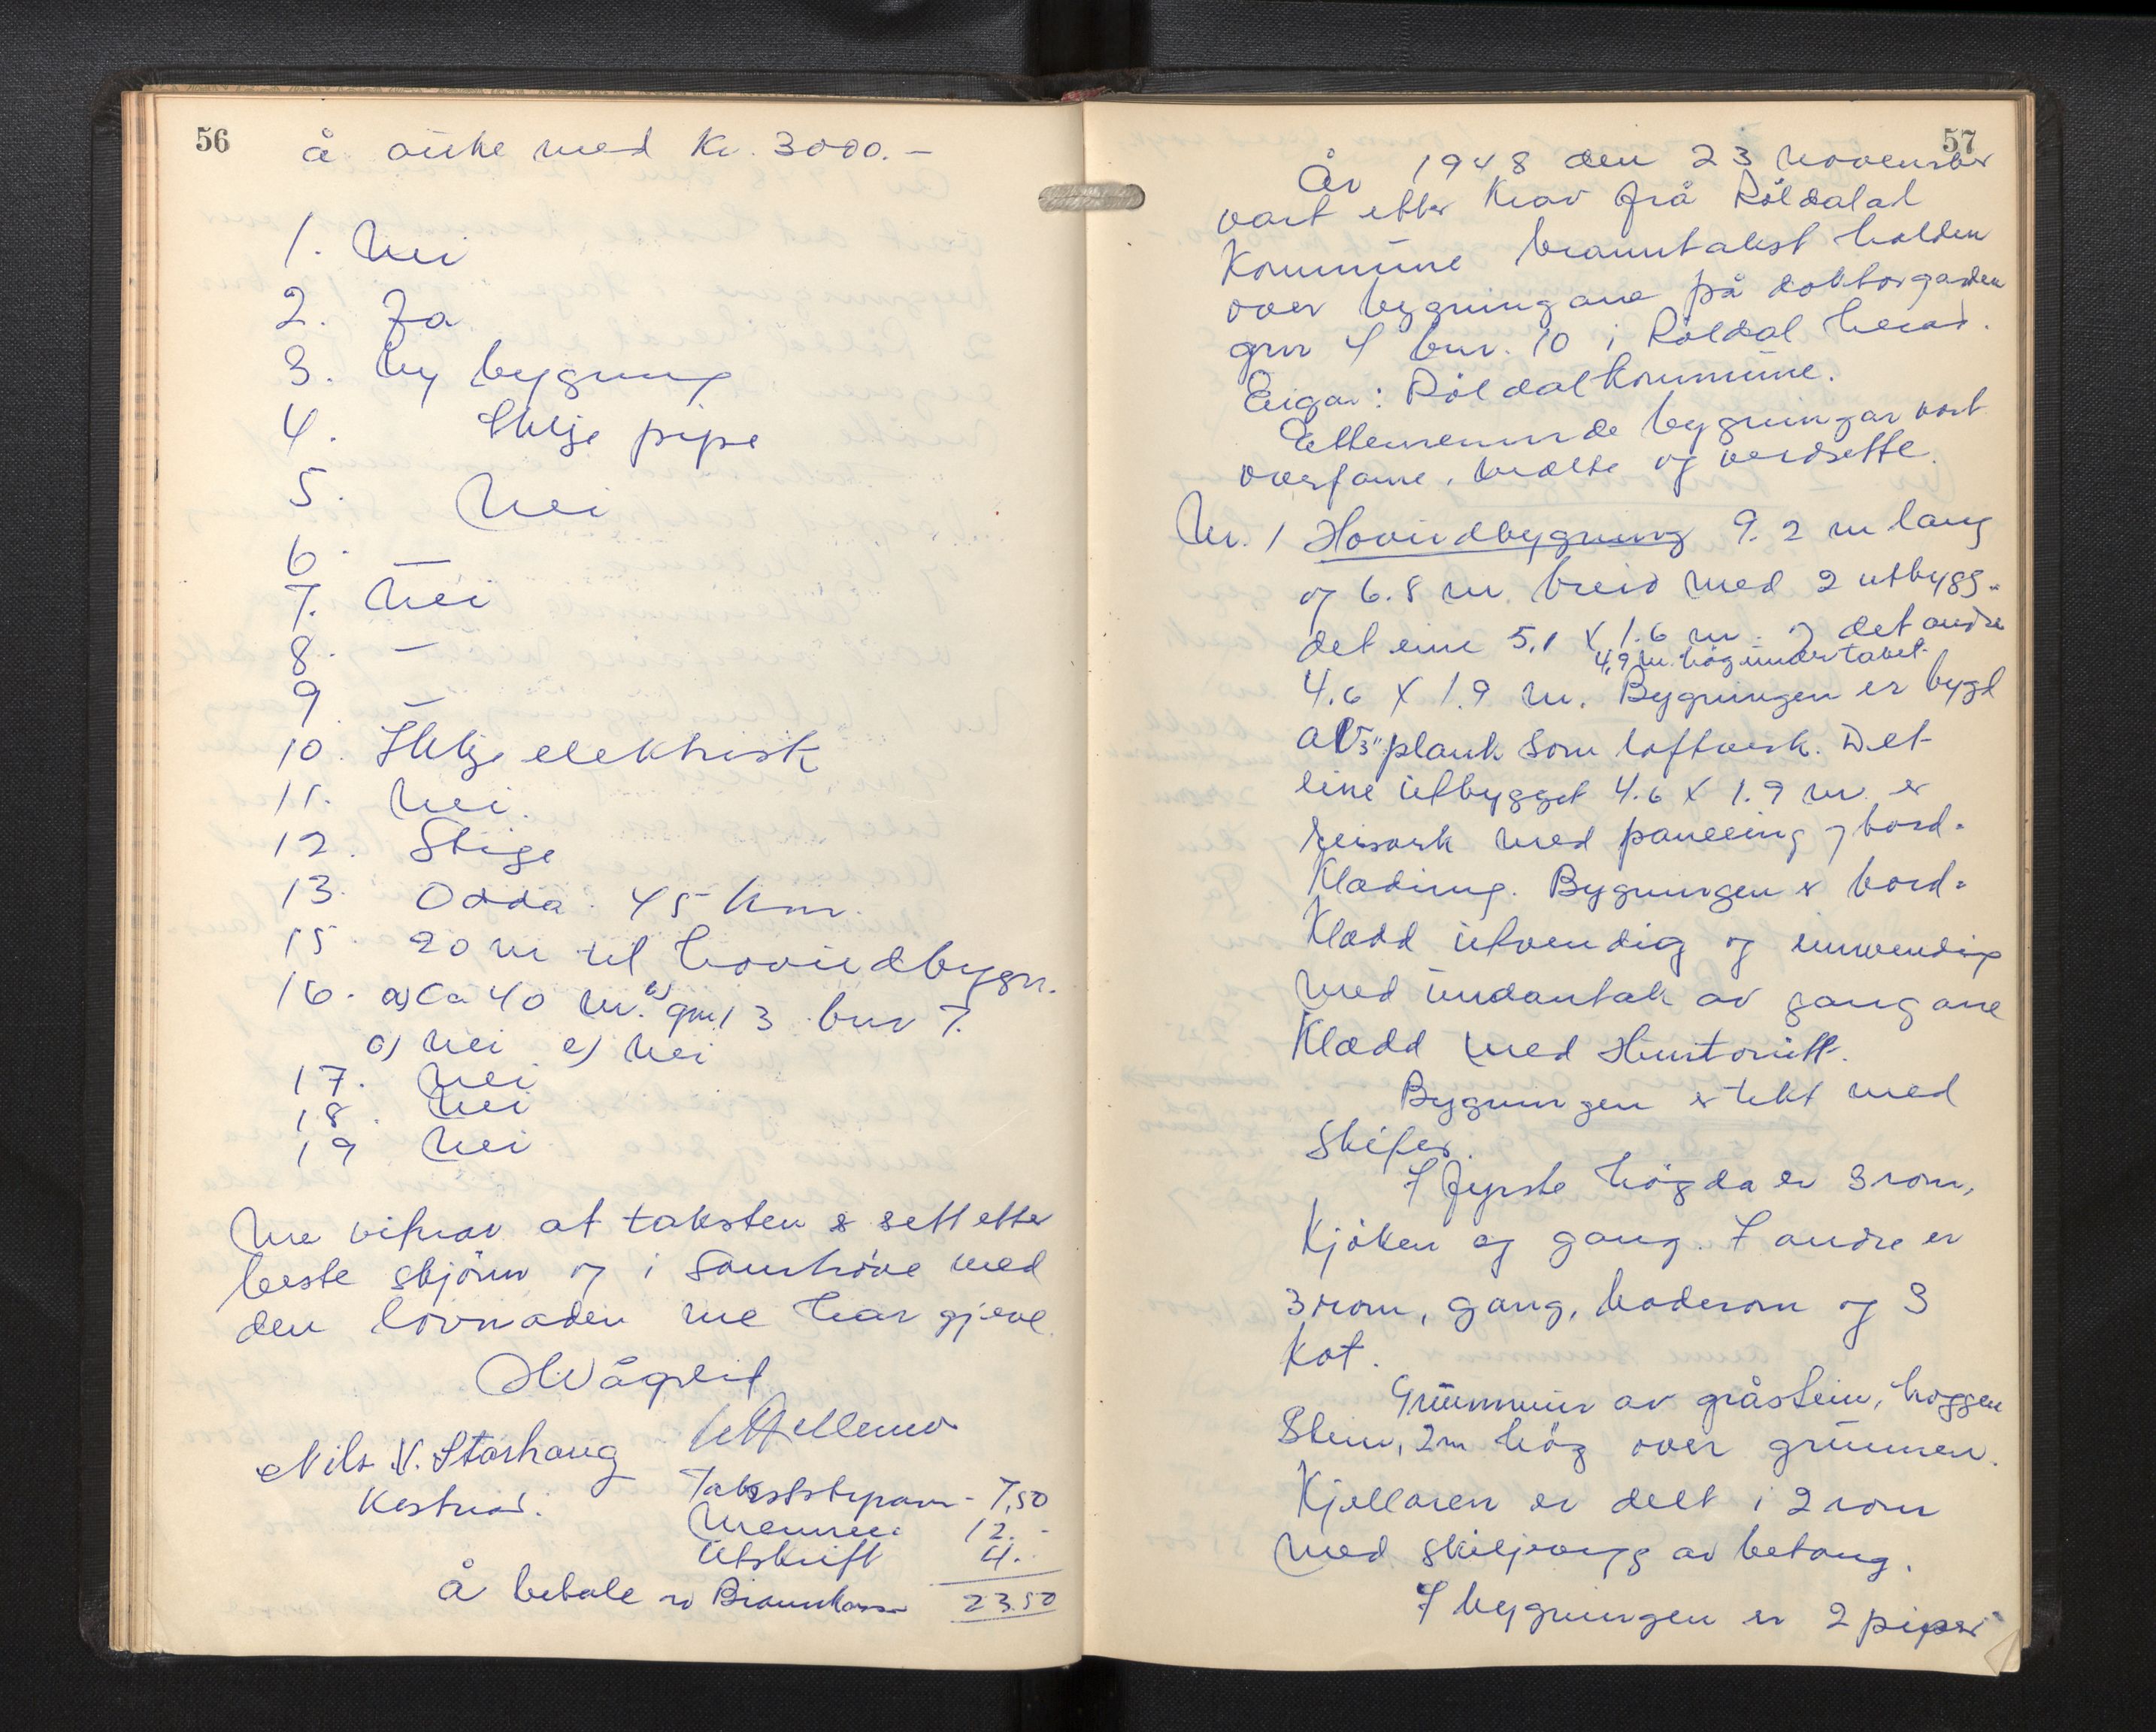 56
å auke med Kr. 3000.-
1. Nei
2. Ja
3. Ny bygning
4. Ikkje pipe
5. Nei
6. —
7. Nei
8. —
9 —
10. Ikkje elektrisk
11. Nei.
12. Stige
13. Odda. 45 km.
15. 20 m til hovudbygn.
16. a) Ca 40 m. b) gnr 13 bnr 7.
c) nei e) nei
17. Nei
18. Nei
19 Nei
Me vitnar at taksten er sett etter
beste skjønn og i samhøve med
den lovnaden me har gjeve.
Nils V. Storhaug
Takststyrarar - 7,50
Mennene 12.-
Utskrift 4.-
å betale av Brannkassa 23.50
57
År 1948 den 23 november
vart etter krav frå Röldal
Kommune branntakst halden
over bygningane på doktorgarden
gnr 4 bnr. 10 i Röldal herad.
Eigar: Röldal Kommune.
Etternemnde bygningar vart
overfarne, mælte og verdsette.
Nr. 1 Hovudbygning 9.2 m lang
og 6.8 m. breid med 2 utbygg.
det eine 5,1 x 1.6 m. og det andre
4,9 m. høg under taket.
4.6 x 1.9 m. Bygningen er bygd
av 3" plank som laftverk. Det
eine utbygget 4.6 x 1.9 m. er
reisverk med paneling og bord-
Klædning. Bygningen er bord-
Klædd utvendig og innvendig
med undantak av gangane
Klædd med Huntonitt.
Bygningen er tekt med
Skifer.
I fyrste høgda er 3 rom,
Kjøken og gang. I andre er
3 rom, gang, baderom og 3
kot.
Grunnmur av gråstein, hoggen
Stein, 2 m høg over grunnen.
Kjellaren er delt i 2 rom
med skiljevegg av betong.
I bygningen er 2 piper